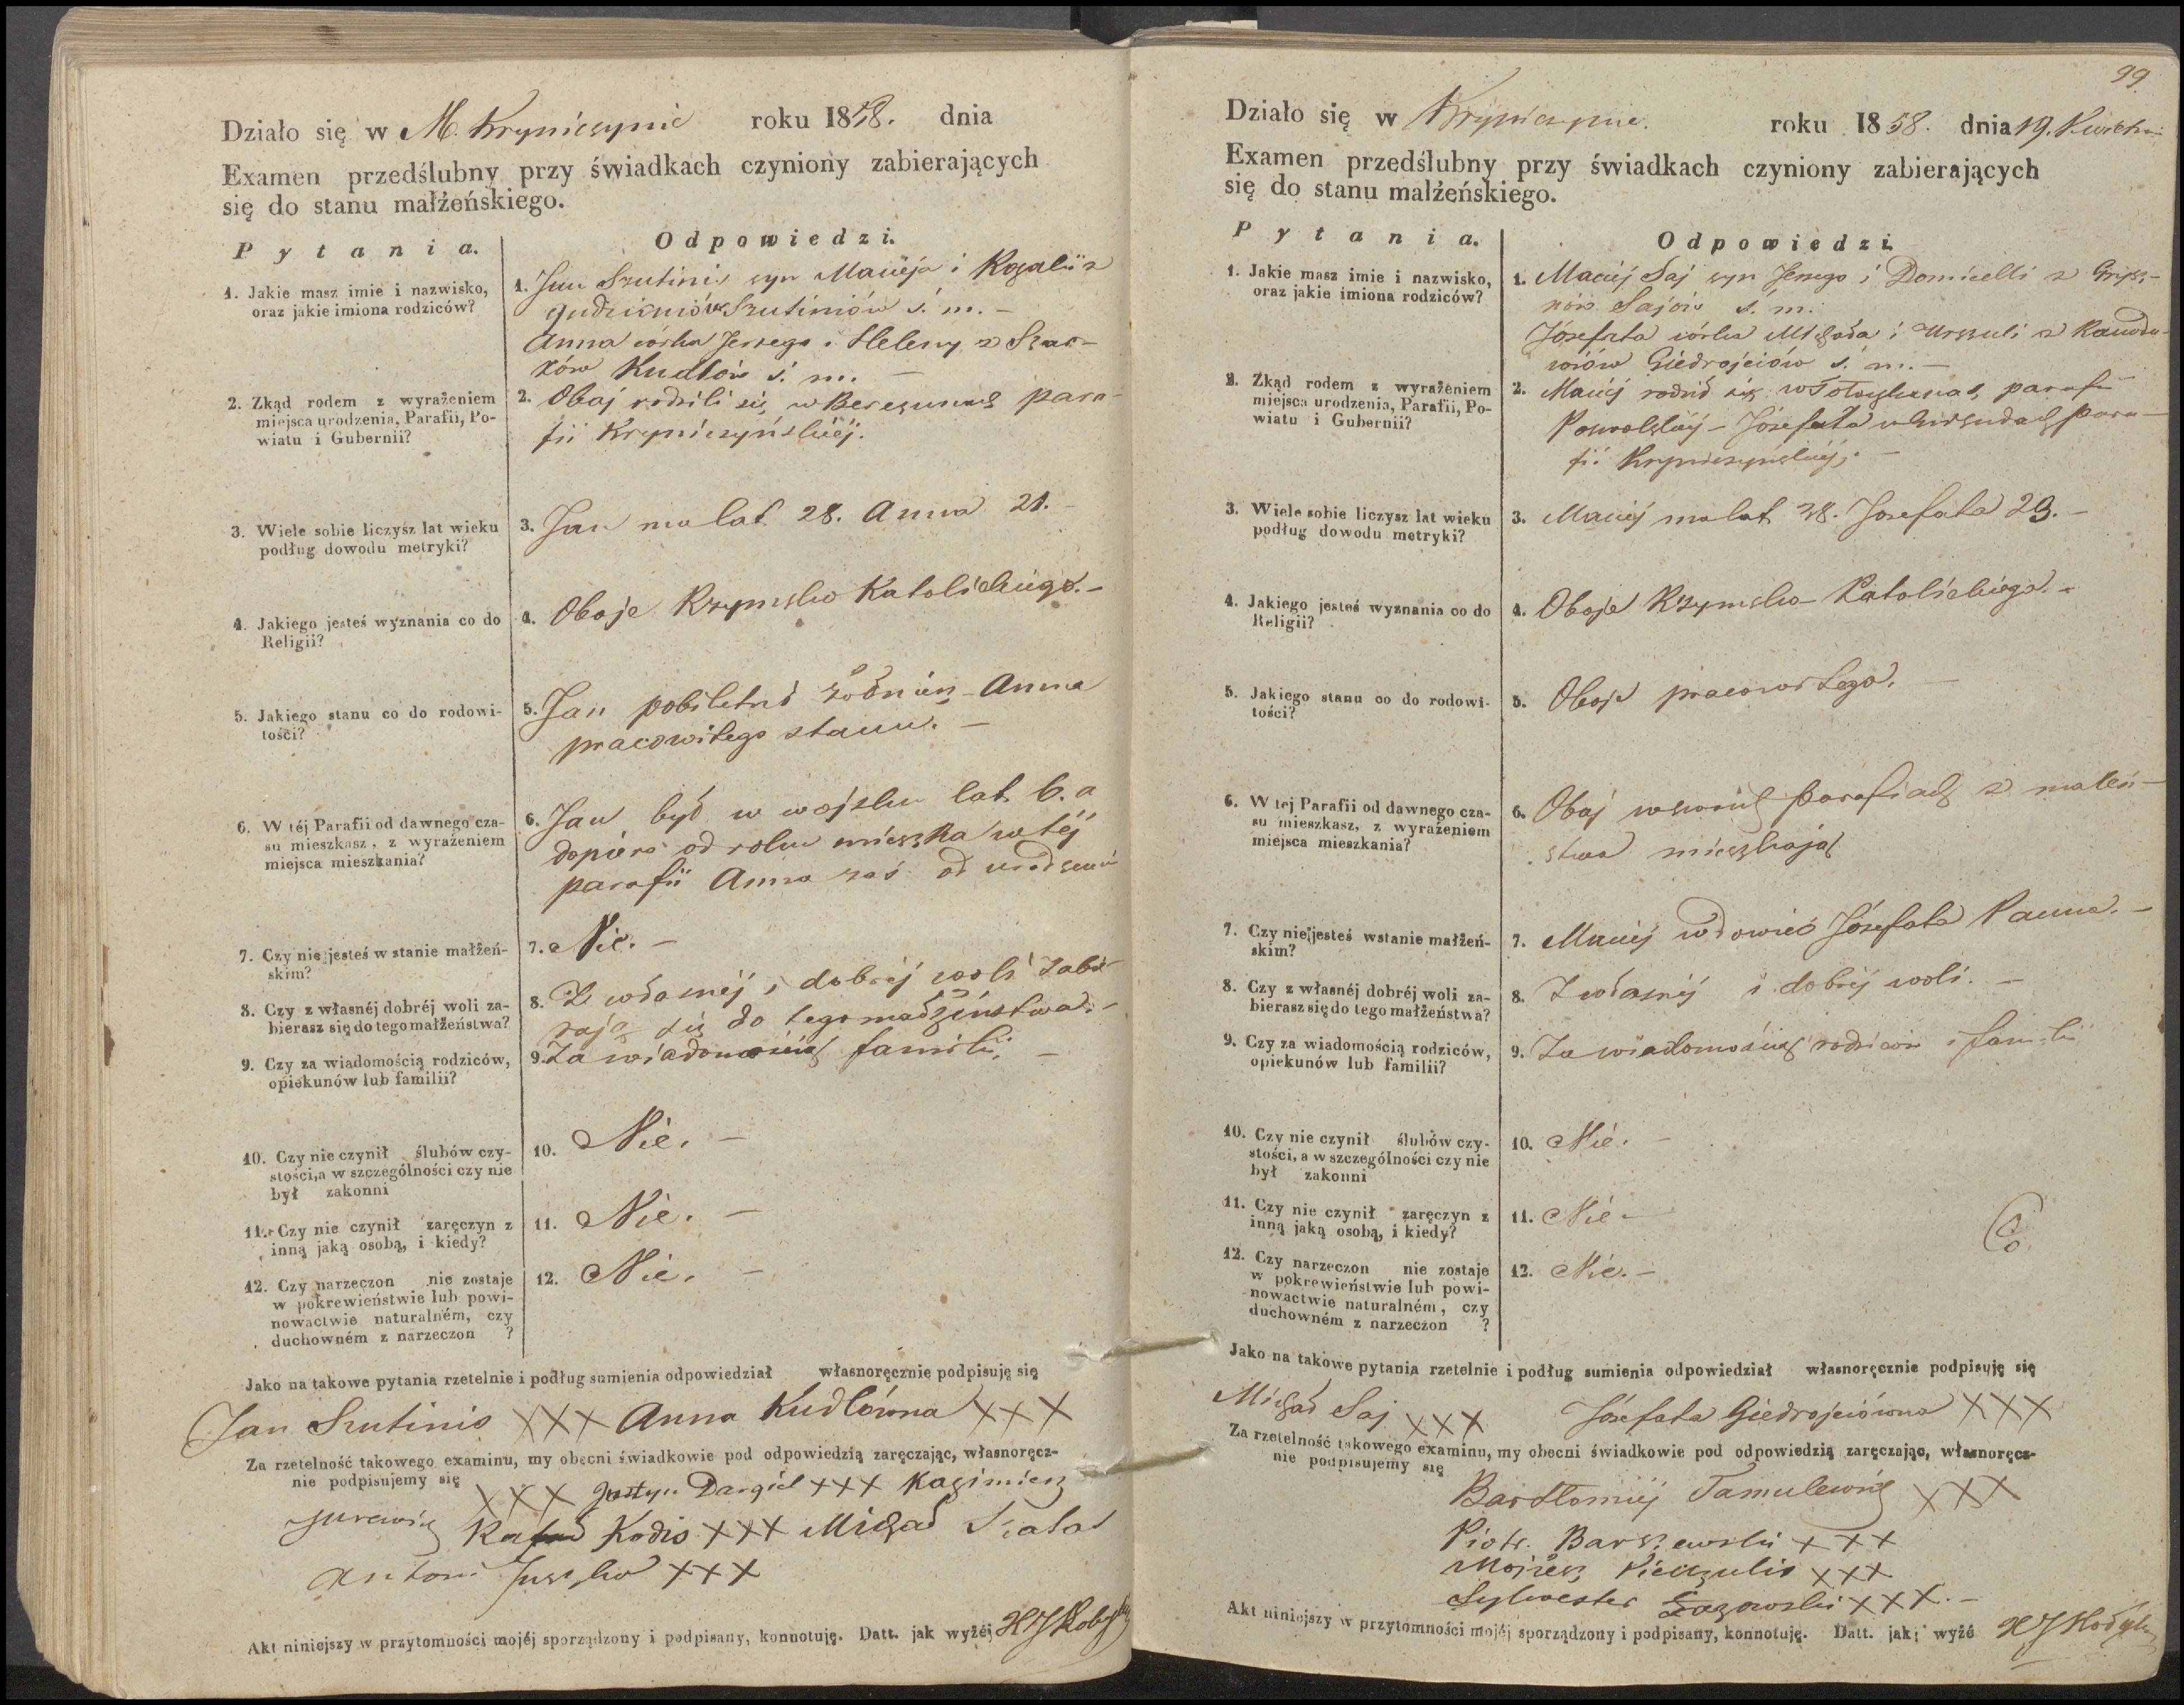 Działo się w M. Kryniczynie roku 1858. dnia
Examen przedślubny przy świadkach czyniony zabierających
się do stanu małżeńskiego.
Pytania.
Odpowiedzi.
1. Jakie masz imie i nazwisko,
oraz jakie imiona rodziców?
1. Jan Szutinis syn Macieja i Rozalii z
Szutiniów ś. m. -
Anna córka Jerzego i Heleny z Szac-
ków Kudłów ś. m. -
2. Zkąd rodem z wyrażeniem
miejsca urodzenia, Parafii, Po-
wiatu i Gubernii?
2. Obaj rodzili się w para-
fii Kryniczyńskiéj.
3. Wiele sobie liczysz lat wieku
podług dowodu metryki?
3. Jan ma lat 28. Anna 21. -
4. Jakiego jesteś wyznania co do
Religii?
4. Oboje Rzymsko Katolickiego. -
5. Jakiego stanu co do rodowi-
tości?
5. Jan pobiletny żołnierz - Anna
pracowitego stanu. -
6. W téj Parafii od dawnego cza-
su mieszkasz, z wyrażeniem
miejsca mieszkania?
6. Jan był w wojsku lat 6. a
dopiero od roku mieszka w téj
parafii Anna zaś od urodzenia
7. Czy nie jesteś w stanie małżeń-
skim?
7. Nie. -
8. Czy z własnéj dobréj woli za-
bierasz się do tego małżeństwa?
8. Z własnéj i dobréj woli zabie-
rają się do tego małżeństwa. -
9. Czy za wiadomością rodziców,
opiekunów lub familii?
9. Za wiadomością familii. -
10. Czy nie czynił ślubów czy-
stości, a w szczególności czy nie
był zakonni
10. Nie. -
11. Czy nie czynił zaręczyn z
inną jaką osobą, i kiedy?
11. Nie. -
12. Czy narzeczon nie zostaje
w pokrewieństwie lub powi-
nowactwie naturalném, czy
duchowném z narzeczon ?
12. Nie. -
Jako na takowe pytania rzetelnie i podług sumienia odpowiedział własnoręcznie podpisuję się
Jan Szutinis XXX Anna Kudłówna XXX
Za rzetelność takowego examinu, my obecni świadkowie pod odpowiedzią zaręczając, własnoręcz-
nie podpisujemy się
XXX Justyn Dargiel XXX Kazimierz
Jurewicz Kodis XXX Michał
Antoni Juszko XXX
Akt niniejszy w przytomności mojéj sporządzony i podpisany, konnotuję. Datt. jak wyżéj
99
Działo się w Krynicznie. roku 1858. dnia 19. Kwietnia
Examen przedślubny przy świadkach czyniony zabierających
się do stanu małżeńskiego.
Pytania.
Odpowiedzi.
1. Jakie masz imie i nazwisko,
oraz jakie imiona rodziców?
1. Maciej Saj syn Jerzego i Domicelli z
Sajów ś. m.
Józefata córka Michała i Urszuli z
Giedrojciów ś. m. -
2. Zkąd rodem z wyrażeniem
miejsca urodzenia, Parafii, Po-
wiatu i Gubernii?
2. Maciej rodził się w parafii
- Józefata w para-
fii Kryniczyńskiéj. -
3. Wiele sobie liczysz lat wieku
podług dowodu metryki?
3. Maciej ma lat 38. Józefata 29. -
4. Jakiego jesteś wyznania co do
Religii?
4. Oboje Rzymsko Katolickiego. -
5. Jakiego stanu co do rodowi-
tości?
5. Oboje pracowitego. -
6. W tej Parafii od dawnego cza-
su mieszkasz, z wyrażeniem
miejsca mieszkania?
6. Obaj w swoich parafiach z maleń-
stwa mieszkają
7. Czy nie jesteś wstanie małżeń-
skim?
7. Maciej wdowiec Józefata Panna. -
8. Czy z własnéj dobréj woli za-
bierasz się do tego małżeństwa?
8. Z własnéj i dobréj woli. -
9. Czy za wiadomością rodziców,
opiekunów lub familii?
9. Za wiadomością rodziców i familii
10. Czy nie czynił ślubów czy-
stości, a w szczególności czy nie
był zakonni
10. Nie. -
11. Czy nie czynił zaręczyn z
inną jaką osobą, i kiedy?
11. Nie -
12. Czy narzeczon nie zostaje
w pokrewieństwie lub powi-
nowactwie naturalném, czy
duchowném z narzeczon ?
12. Nie. -
Jako na takowe pytania rzetelnie i podług sumienia odpowiedział własnoręcznie podpisuję się
Michał Saj XXX Józefata Giedrojciówna XXX
Za rzetelność takowego examinu, my obecni świadkowie pod odpowiedzią zaręczając, własnoręcz-
nie podpisujemy się
Bartłomiej Tamulewicz XXX
Piotr Barszewski XXX
Mojżesz XXX
Sylwester Łazowski XXX. -
Akt niniejszy w przytomności mojéj sporządzony i podpisany, konnotuję. Datt. jak wyżé